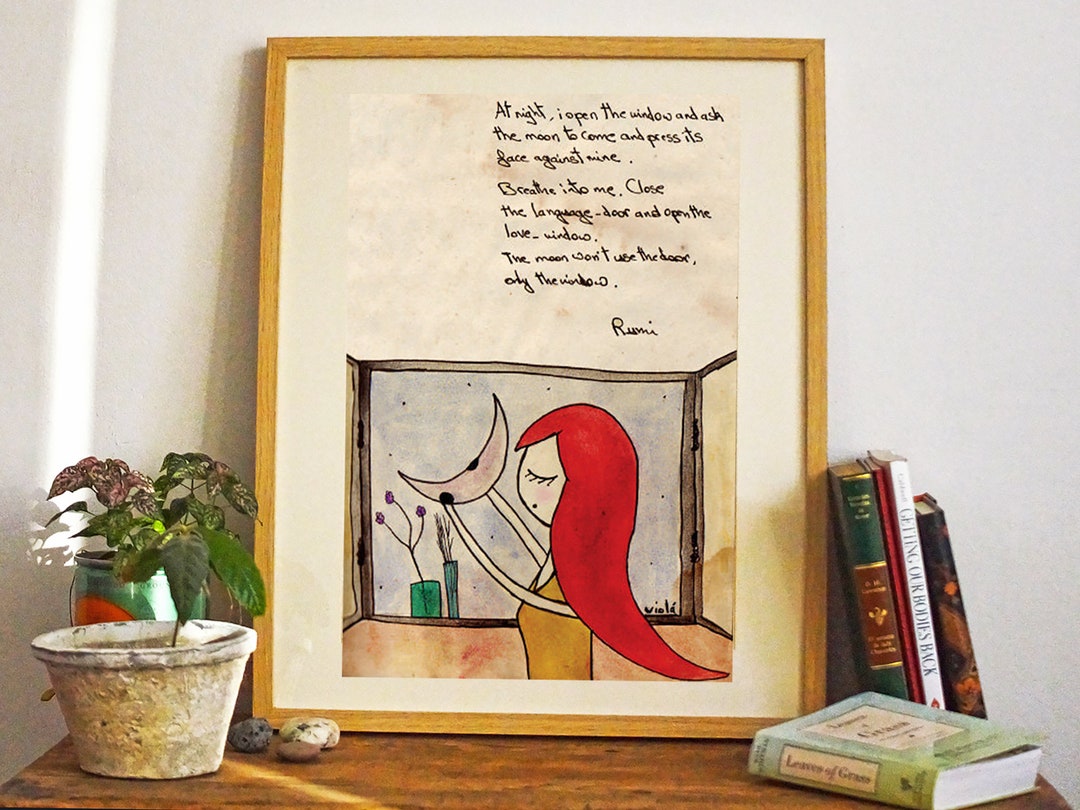 At night, i open the window and ask
the moon to come and press its
face against mine.
Breathe into me. Close
the language-door and open the
love-window.
The moon won't use the door,
only the window.
Rumi
violá
GETTING OUR BODIES BACK
Leaves of Grass